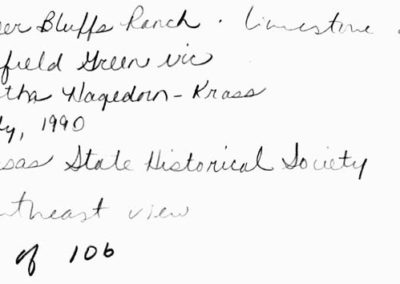 er Bluffs Ranch · limestone
field Green vic
tha Hagedorn-Krass
y, 1990
sas State Historical Society
theast view
of 106